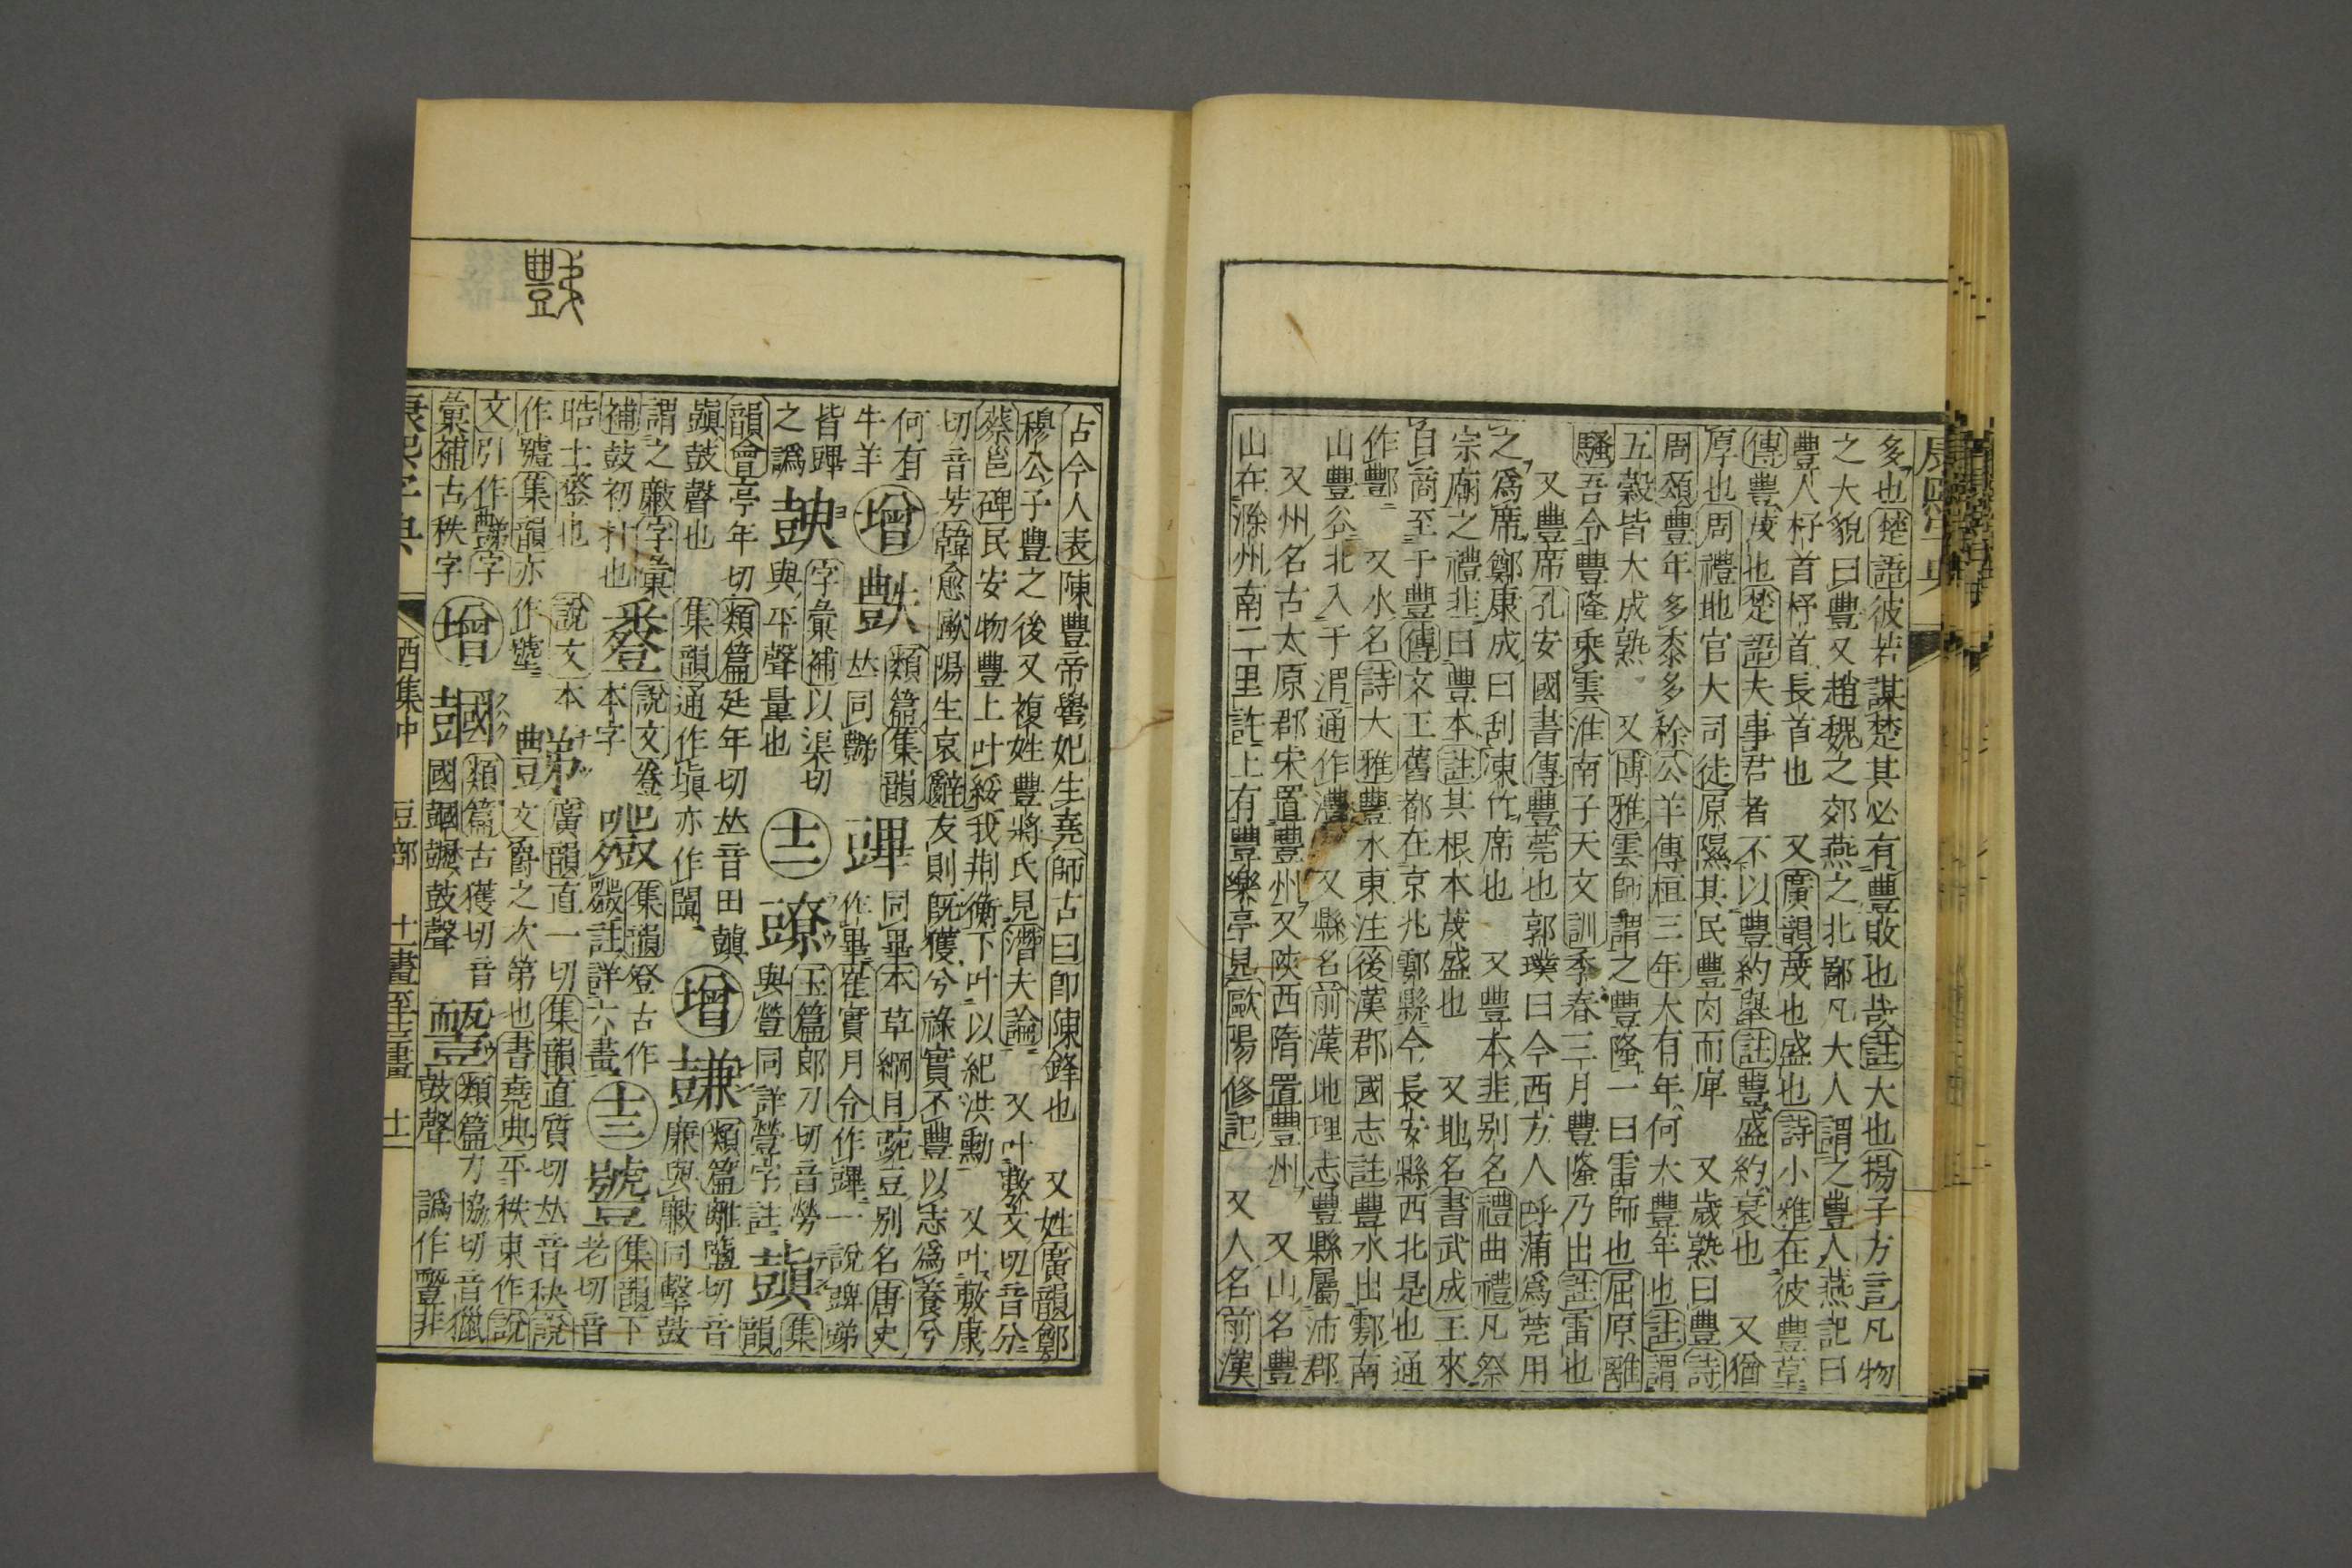 多也楚語彼若謀楚其必有豐敗也哉註大也揚子方言凡物
之大貌曰豐又趙魏之郊燕之北鄙凡大人謂之豐人燕記曰
豐人杼首杼首長首也 又廣韻茂也盛也詩小雅在彼豐草
傳豐茂也楚語夫事君者不以豐約舉註豐盛約衰也 又猶
厚也周禮地官大司徒原隰其民豐肉而庳 又歲熟曰豐詩
周頌豐年多黍多稌公羊傳桓三年大有年何大豐年也註謂
五穀皆大成熟 又博雅雲師謂之豐隆一曰雷師也屈原離
騷吾令豐隆乘雲淮南子天文訓季春三月豐隆乃出註雷也
又豐席孔安國書傳豐莞也郭璞曰今西方人呼蒲爲莞用
之爲席鄭康成曰刮凍竹席也 又豐本韭别名禮曲禮凡祭
宗廟之禮韭曰豐本註其根本茂盛也 又地名書武成王來
自商至于豐傳文王舊都在京兆鄠縣今長安縣西北是也通
作酆 又水名詩大雅豐水東注後漢郡國志註豐水出鄠南
山豐谷北入于渭通作灃 又縣名前漢地理志豐縣屬沛郡
又州名古太原郡宋置豐州又陝西隋置豐州 又山名豐
山在滁州南二里許上有豐樂亭見歐陽修記 又人名前漢
古今人表陳豐帝嚳妃生堯師古曰卽陳鋒也 又姓廣韻鄭
穆公子豐之後又複姓豐將氏見潛夫論 又叶敷文切音分
蔡邕碑民安物豐上叶綏我荆衡下叶以紀洪勳 又叶敷康
切音芳韓愈歐陽生哀辭友則旣獲兮祿實不豐以志爲養兮
何有
牛羊 增 類篇集韻
𠀤同 同畢本草綱目豌豆别名唐史
作畢崔實月令作 一說 
皆
之譌 字彙補以渠切
與 平聲量也 十二 玉篇郎刀切音勞
與 同詳 字註 集韻
韻會亭年切類篇廷年切𠀤音田
鼓聲也集韻通作塡亦作闐 增 類篇離鹽切音
廉與 同擊鼓
謂之 字彙
補鼓初 也 說文
本字 集韻登古作
註詳六畫 十三 號 集韻下
老切音
晧土 也 說文本
作 集韻亦作 廣韻直一切集韻直質切𠀤音秩說
文爵之次第也書堯典平秩東作說
文引作 字 類篇古獲切音
國 鼓聲 類篇力協切音獵
鼓聲 譌作 非
彙補古秩字 增
康熙字典 酉集中 豆部 十一畫至十三畫 十一